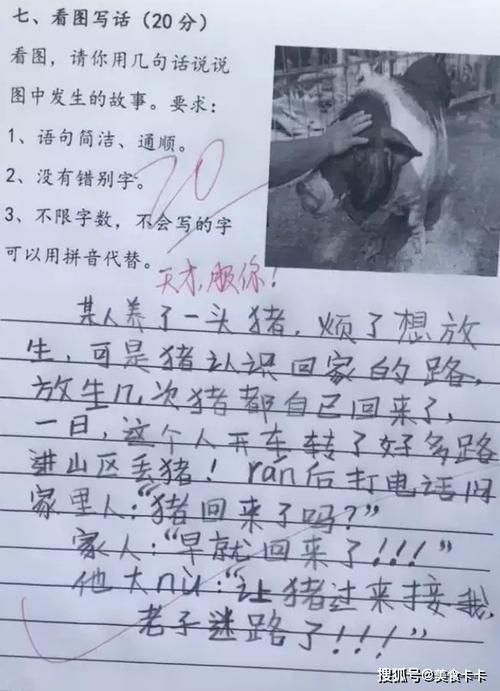 七、看图写话（20分）
看图，请你用几句话说说
图中发生的故事。要求：
1、语句简洁、通顺。
2、没有错别字。
3、不限字数，不会写的字
可以用拼音代替。
20
天才，服你！
某人养了一头猪，烦了想放
生，可是猪认识回家的路，
放生几次猪都自己回来了，
一日，这个人开车转了好多路
进山区丢猪！rán后打电话问
家里人：“猪回来了吗？”
家人：“早就回来了！！！”
他大nù：“让猪过来接我，
老子迷路了！！！”
搜狐号@美食卡卡